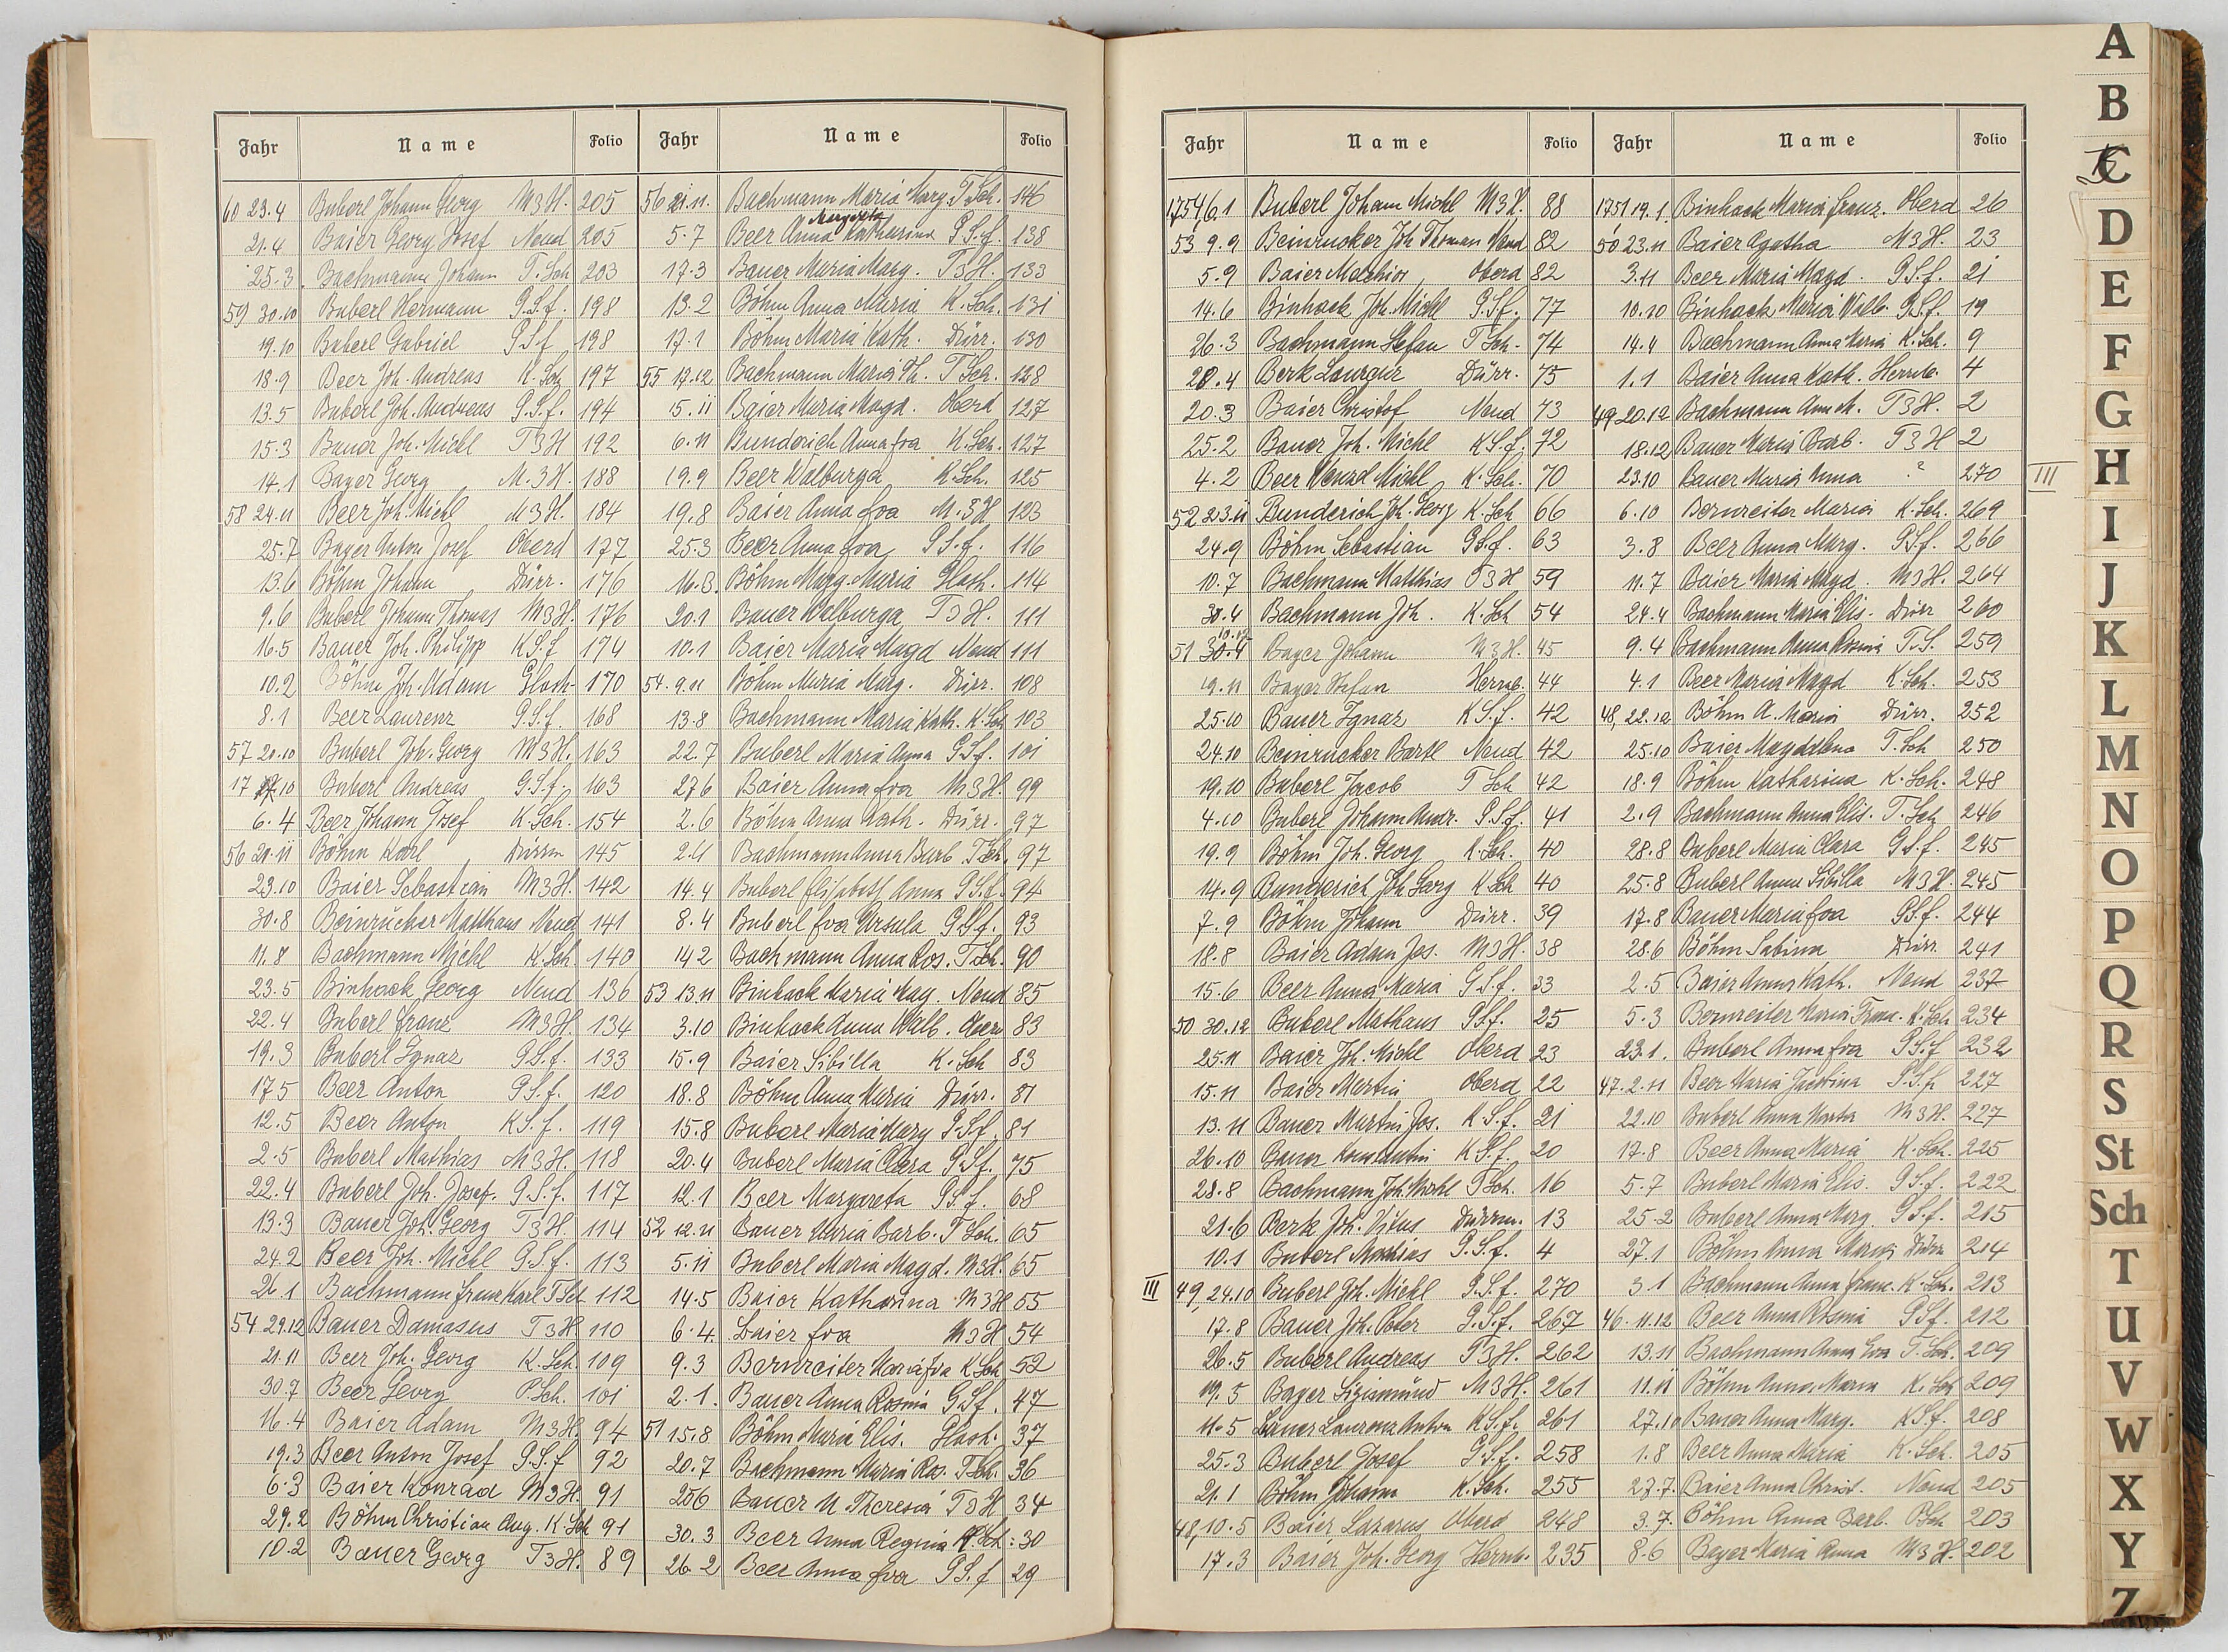 Fahr Name Folio Fahr Name Folio
60 23.4 Buberl Johann Georg M3H. 205
21.4 Baier Georg Josef Neud 205
25.3 Bachmann Johann T.Sch 203
59 30.10 Buberl Hermann G.S.f. 198
19.10 Buberl Gabriel G.S.f 198
18.9 Beer Joh. Andreas K.Sch 197
13.5 Buberl Joh. Andreas G.S.f. 194
15.3 Bauer Joh. Michl T3H 192
14.1 Bayer Georg M.3H. 188
58 24.11 Beer Joh. Michl M3H. 184
25.7 Bayer Anton Josef Oberd 177
13.6 Böhm Johann Dürr. 176
9.6 Buberl Johann Thomas M3H. 176
16.5 Bauer Joh. Philipp K.S.f 174
10.2 Böhm Joh. Adam Glash. 170
8.1 Beer Laurenz G.S.f. 168
57 20.10 Buberl Joh. Georg M3H. 163
17.10 Buberl Andreas G.S.f. 163
6.4 Beer Johann Josef K.Sch. 154
56 20.11 Böhm Karl Dürrm 145
23.10 Baier Sebastian M3H. 142
30.8 Beinrucker Matthäus Neud 141
11.8 Bachmann Michl K.Sch. 140
23.5 Binhack Georg Neud 136
22.4 Buberl Franz M3H. 134
19.3 Buberl Ignaz G.S.f. 133
17.5 Beer Anton G.S.f. 120
12.5 Beer Anton K.S.f. 119
2.5 Buberl Mathias M3H. 118
22.4 Buberl Joh. Josef. G.S.f. 117
13.3 Bauer Joh. Georg T3H. 114
24.2 Beer Joh. Michl G.S.f. 113
26.1 Bachmann Franz Karl T.Sch 112
54 29.12 Bauer Damasus T3H 110
21.11 Beer Joh. Georg K.Sch. 109
30.7 Beer Georg P.Sch. 101
16.4 Baier Adam M3H. 94
19.3 Beer Anton Josef G.S.f 92
6.3 Baier Konrad M3H. 91
29.2 Böhm Christian Aug. K.Sch 91
10.2 Bauer Georg T3H. 89
56 21.11. Bachmann Maria Marg. T.Sch. 146
Margareta
5.7 Beer Anna Katharina G.S.f. 138
17.3 Bauer Maria Marg. T3H. 133
13.2 Böhm Anna Maria K.Sch. 131
17.1 Böhm Maria Kath. Dürr. 130
55 17.12 Bachmann Maria Th. T.Sch. 128
15.11 Baier Maria Magd. Oberd 127
6.11 Bunderich Anna Eva K.Sch. 127
19.9 Beer Walburga K.Sch. 125
19.8 Baier Anna Eva M.3H 123
25.3 Beer Anna Eva G.S.f. 116
16.3. Böhm Marg. Maria Glash. 114
20.1 Bauer Walburga T3H. 111
10.1 Baier Maria Magd Neud 111
54. 9.11 Böhm Maria Marg. Dürr. 108
13.8 Bachmann Maria Kath. K.Sch 103
22.7 Buberl Maria Anna G.S.f. 101
27.6 Baier Anna Eva M3H. 99
2.6 Böhm Anna Kath. Dürr. 97
2.4 Bachmann Anna Barb T.Sch. 97
14.4 Buberl Elisabeth Anna G.S.f. 94
8.4 Buberl Eva Ursula G.S.f. 93
14.2 Bachmann Anna Ros. T.Sch. 90
53 13.11 Binhack Maria Mag. Neud 85
3.10 Binhack Anna Walb. Ober 83
15.9 Baier Sibilla K.Sch 83
18.8 Böhm Anna Maria Dürr. 81
15.8 Buberl Maria Marg G.S.f. 81
20.4 Buberl Maria Clara G.S.f. 75
12.1 Beer Margareta G.S.f. 68
52 12.11 Bauer Maria Barb. T.Sch. 65
5.11 Buberl Maria Magd. M3H. 65
14.5 Baier Katharina M3H 55
6.4. Baier Eva M3H 54
9.3 Bernreiter Maria Eva K.Sch 52
2.1. Bauer Anna Rosina G.S.f. 47
51 15.8 Böhm Maria Elis. Glash. 37
20.7 Bachmann Maria Ros. T.Sch. 36
25.6 Bauer M. Theresia T3H 34
30.3 Beer Anna Regina K.Sch. 30
26.2 Beer Anna Eva G.S.f 29
Fahr Name Folio Fahr Name Folio
1754 6.1 Buberl Johann Michl M3H. 88
53 9.9 Beinrucker Joh Thomas Neud 82
5.9 Baier Melchior Oberd 82
14.6 Binhack Joh. Michl G.S.f. 77
26.3 Bachmann Stefan T.Sch. 74
28.4 Berk Dürr. 75
20.3 Baier Christof Neud 73
25.2 Bauer Joh. Michl K.S.f. 72
4.2 Beer Michl K.Sch. 70
52 23.11 Bunderich Joh. Georg K.Sch 66
24.9 Böhm Sebastian G.S.f. 63
10.7 Bachmann Matthias T3H 59
30.4 Bachmann Joh. K.Sch 54
10.12
51 30.4 Bayer Johann M3H. 45
19.11 Bayer Stefan Herrnb. 44
25.10 Bauer Ignaz K.S.f. 42
24.10 Beinrucker Bartl Neud 42
19.10 Buberl Jacob T.Sch 42
4.10 Buberl Johann Andr. G.S.f. 41
19.9 Böhm Joh. Georg K.Sch. 40
14.9 Bunderich Joh Georg K.Sch 40
7.9 Böhm Johann Dürr. 39
18.8 Baier Adam Jos. M3H. 38
15.6 Beer Anna Maria G.S.f. 33
50 30.12 Buberl Mathäus G.S.f. 25
25.11 Baier Joh. Michl Oberd 23
15.11 Baier Martin Oberd 22
13.11 Bauer Martin Jos. K.S.f. 21
26.10 Bauer Konstantin K.S.f. 20
28.8 Bachmann Joh. Michl T.Sch. 16
21.6 Berk Joh. Vitus Dürrm. 13
10.1 Buberl Mathias G.S.f. 4
III 49, 24.10 Buberl Joh. Michl G.S.f. 270
17.8 Bauer Joh. Peter G.S.f. 267
26.5 Buberl Andreas T3H. 262
19.5 Bayer Sigismund M3H. 261
11.5 Bauer Laurenz Anton K.S.f. 261
25.3 Buberl Josef G.S.f. 258
21.1 Böhm Johann K.Sch. 255
48, 10.5 Baier Lazarus Oberd 248
17.3 Baier Joh. Georg Herrnb. 235
1751 19.1. Binhack Maria Franz. Oberd 26
50 23.11 Baier Agatha M3H. 23
3.11 Beer Maria Magd. G.S.f. 21
10.10 Binhack Maria Walb. G.S.f. 19
14.4 Bachmann Anna Maria K.Sch. 9
1.1 Baier Anna Kath. Herrnb. 4
49 20.12 Bachmann Ann M. T3H. 2
18.12 Bauer Maria Barb. T3H 2
23.10 Bauer Maria Anna ? 270 III
6.10 Bernreiter Maria K.Sch. 269
3.8 Beer Anna Marg. G.S.f. 266
11.7 Baier Maria Magd. M3H. 264
24.4 Bachmann Maria Elis. Dürr 260
9.4 Bachmann Anna Rosina T.S. 259
4.1 Beer Maria Magd K.Sch. 253
48, 22.12 Böhm A. Maria Dürr. 252
25.10 Baier Magdalena T.Sch 250
18.9 Böhm Katharina K.Sch. 248
2.9 Bachmann Anna Elis. T.Sch 246
28.8 Buberl Maria Clara G.S.f. 245
25.8 Buberl Anna Sibilla M3H. 245
17.8 Bauer Maria Eva G.S.f. 244
28.6 Böhm Sabina Dürr. 241
2.5 Baier Anna Kath. Neud 237
5.3 Bernreiter Maria Franz. K.Sch 234
23.1. Buberl Anna Eva G.S.f 232
47. 2.11 Beer Maria G.S.f. 227
22.10 Buberl Anna Marta M3H. 227
17.8 Beer Anna Maria K.Sch. 225
5.7 Buberl Maria Elis. G.S.f. 222
25.2 Buberl Anna Marg. G.S.f. 215
27.1 Böhm Anna Maria Dürr 214
3.1 Bachmann Anna Franz. K.Sch. 213
46. 11.12 Beer Anna Rosina G.S.f. 212
13.11 Bachmann Anna Eva T.Sch. 209
11.11 Böhm Anna Maria K.Sch 209
27.10 Bauer Anna Marg. K.S.f. 208
1.8 Beer Anna Maria K.Sch. 205
27.7. Baier Anna Christ. Neud 205
3.7. Böhm Anna Barb. P.Sch 203
8.6 Beyer Maria Anna M3H. 202
A
B
C
D
E
F
G
H
I
J
K
L
M
N
O
P
Q
R
S
St
Sch
T
U
V
W
X
Y
Z